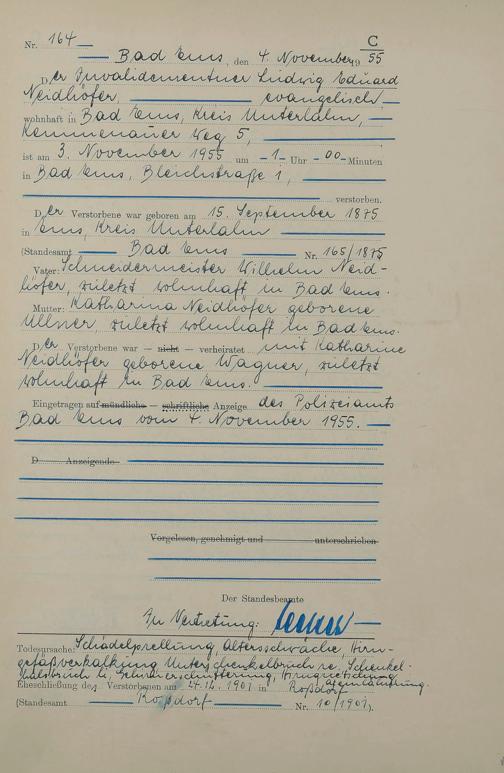 C
Nr. 164
Bad Ems, den 4. November 19 55
Der Invalidenrentner Ludwig Eduard
Neidhöfer, evangelisch,
wohnhaft in Bad Ems, Kreis Unterlahn,
Kemmenauer Weg 5,
ist am 3. November 1955 um -1- Uhr -00- Minuten
in Bad Ems, Bleichstraße 1,
verstorben.
Der Verstorbene war geboren am 15. September 1875
in Ems, Kreis Unterlahn
(Standesamt Bad Ems Nr. 165/1875
Vater: Schneidermeister Wilhelm Neid-
höfer, zuletzt wohnhaft in Bad Ems.
Mutter: Katharina Neidhöfer geborene
Ullner, zuletzt wohnhaft in Bad Ems.
Der Verstorbene war — nicht — verheiratet mit Katharine
Neidhöfer geborene Wagner, zuletzt
wohnhaft in Bad Ems.
Eingetragen auf mündliche — schriftliche Anzeige des Polizeiamts
Bad Ems vom 4. November 1955.
D Anzeigende
Vorgelesen, genehmigt und unterschrieben
Der Standesbeamte
In Vertretung:
Todesursache: Schädelprellung, Altersschwäche, Hirn-
gefäßverkalkung Unterschenkelbruch re. Schenkel-
halsbruch li, Gehirnerschütterung, Hirnquetschung,
Eheschließung des Verstorbenen am 27.12.1901 in Roßdorf
(Standesamt Roßdorf Nr. 10/1901).